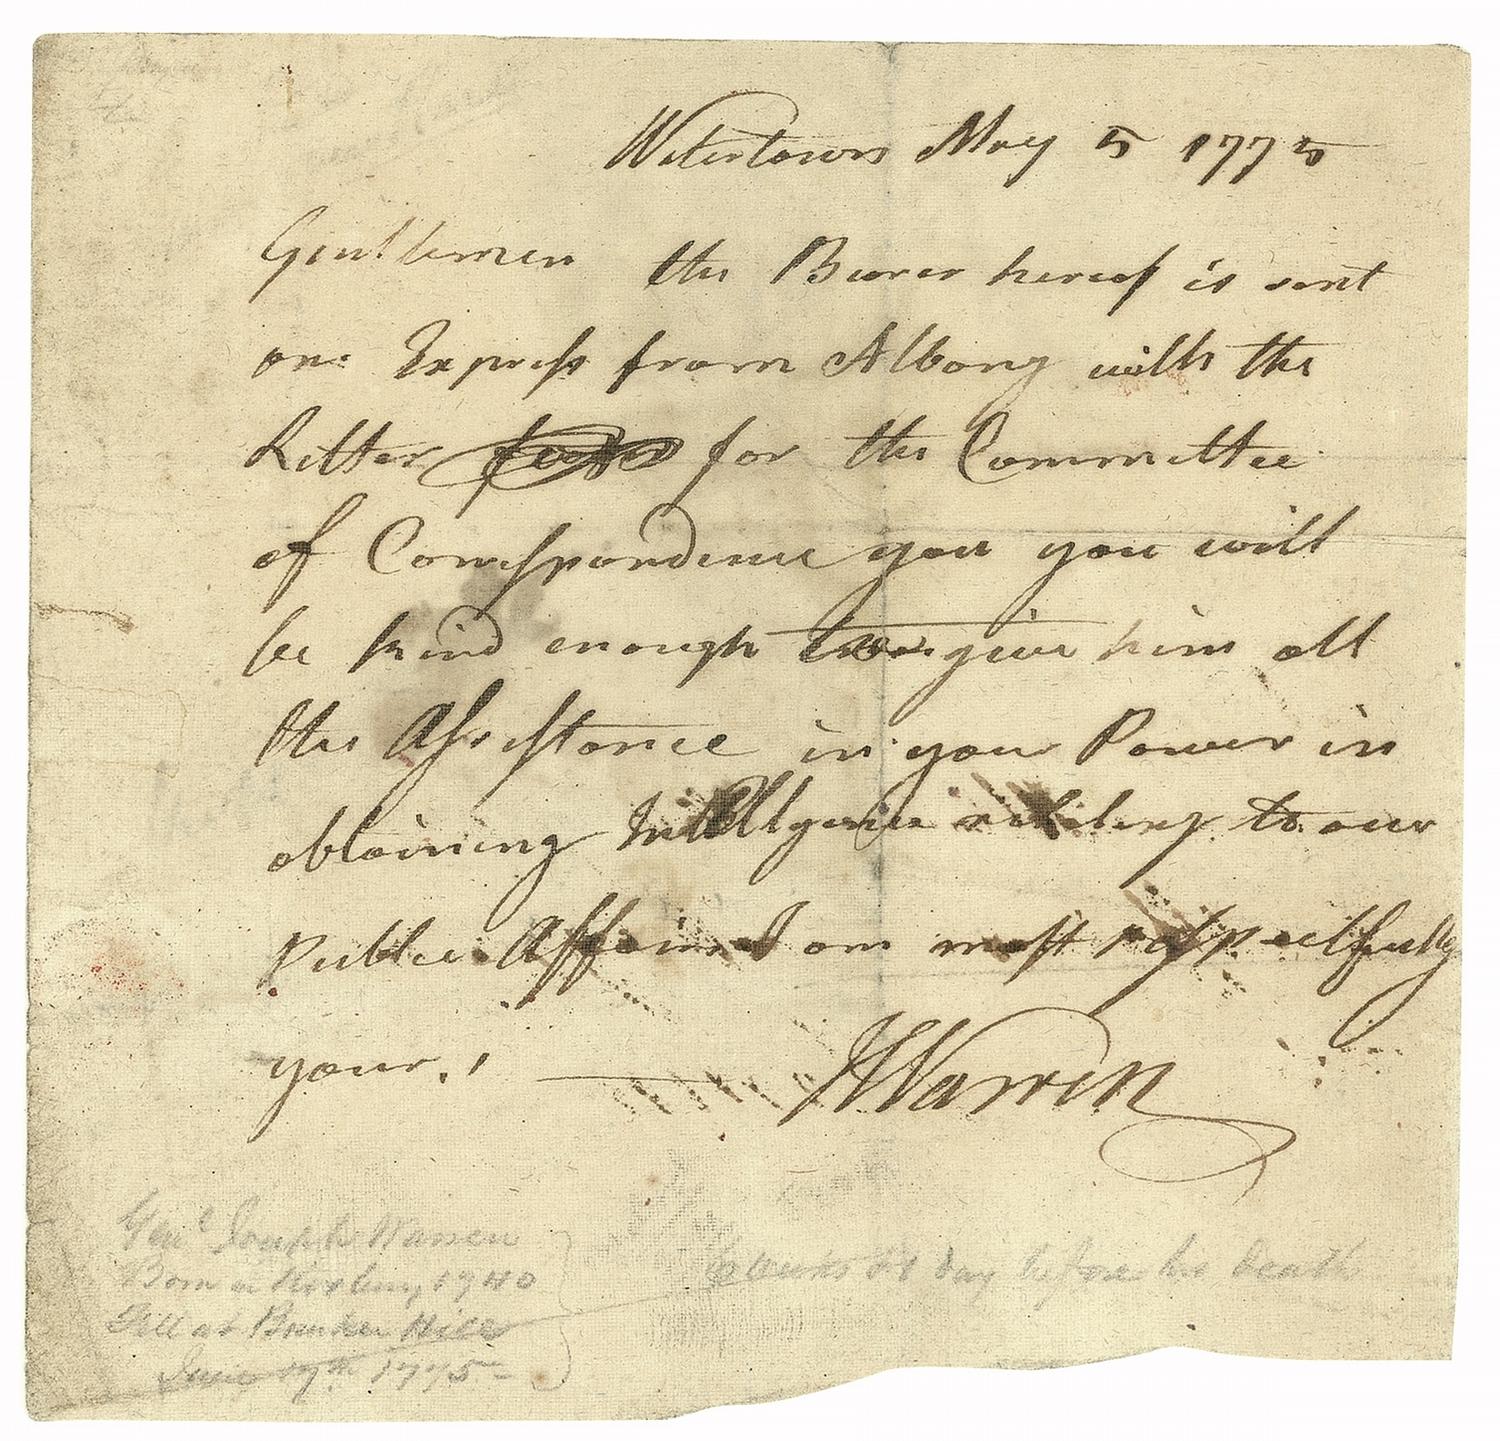 Watertown May 5 1775
Gentlemen the Bearer hereof is sent
one Express from Albany with the
Letter for the Committee
of Correspondence you you will
be kind enough to give him all
the Assistance in your Power in
obtaining Intelligence relating to our
Public Affairs I am most respectfully
yours
JWarren
Genl Joseph Warren
Born in Roxbury 1740
Fell at Bunker Hill
June 17th 1775
6 weeks & 1 day before his death